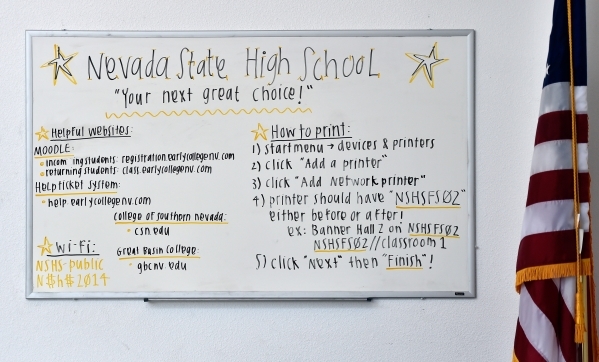 Nevada State High School
"Your next great choice!"
Helpful Websites:
MOODLE:
incoming students: registration.earlycollegenv.com
returning students: class.earlycollegenv.com
Help ticket system:
help.earlycollegenv.com
College of Southern Nevada:
csn.edu
Great Basin College:
gbcnv.edu
Wi-Fi:
NSHS-public
N$h$2014
How to print:
1) start menu → devices & printers
2) click "Add a printer"
3) click "Add Network printer"
4) printer should have "NSHSFS02"
either before or after!
ex: Banner Hall 2 on NSHSFS02
NSHSFS02//classroom 1
5) click "Next" then "Finish"!